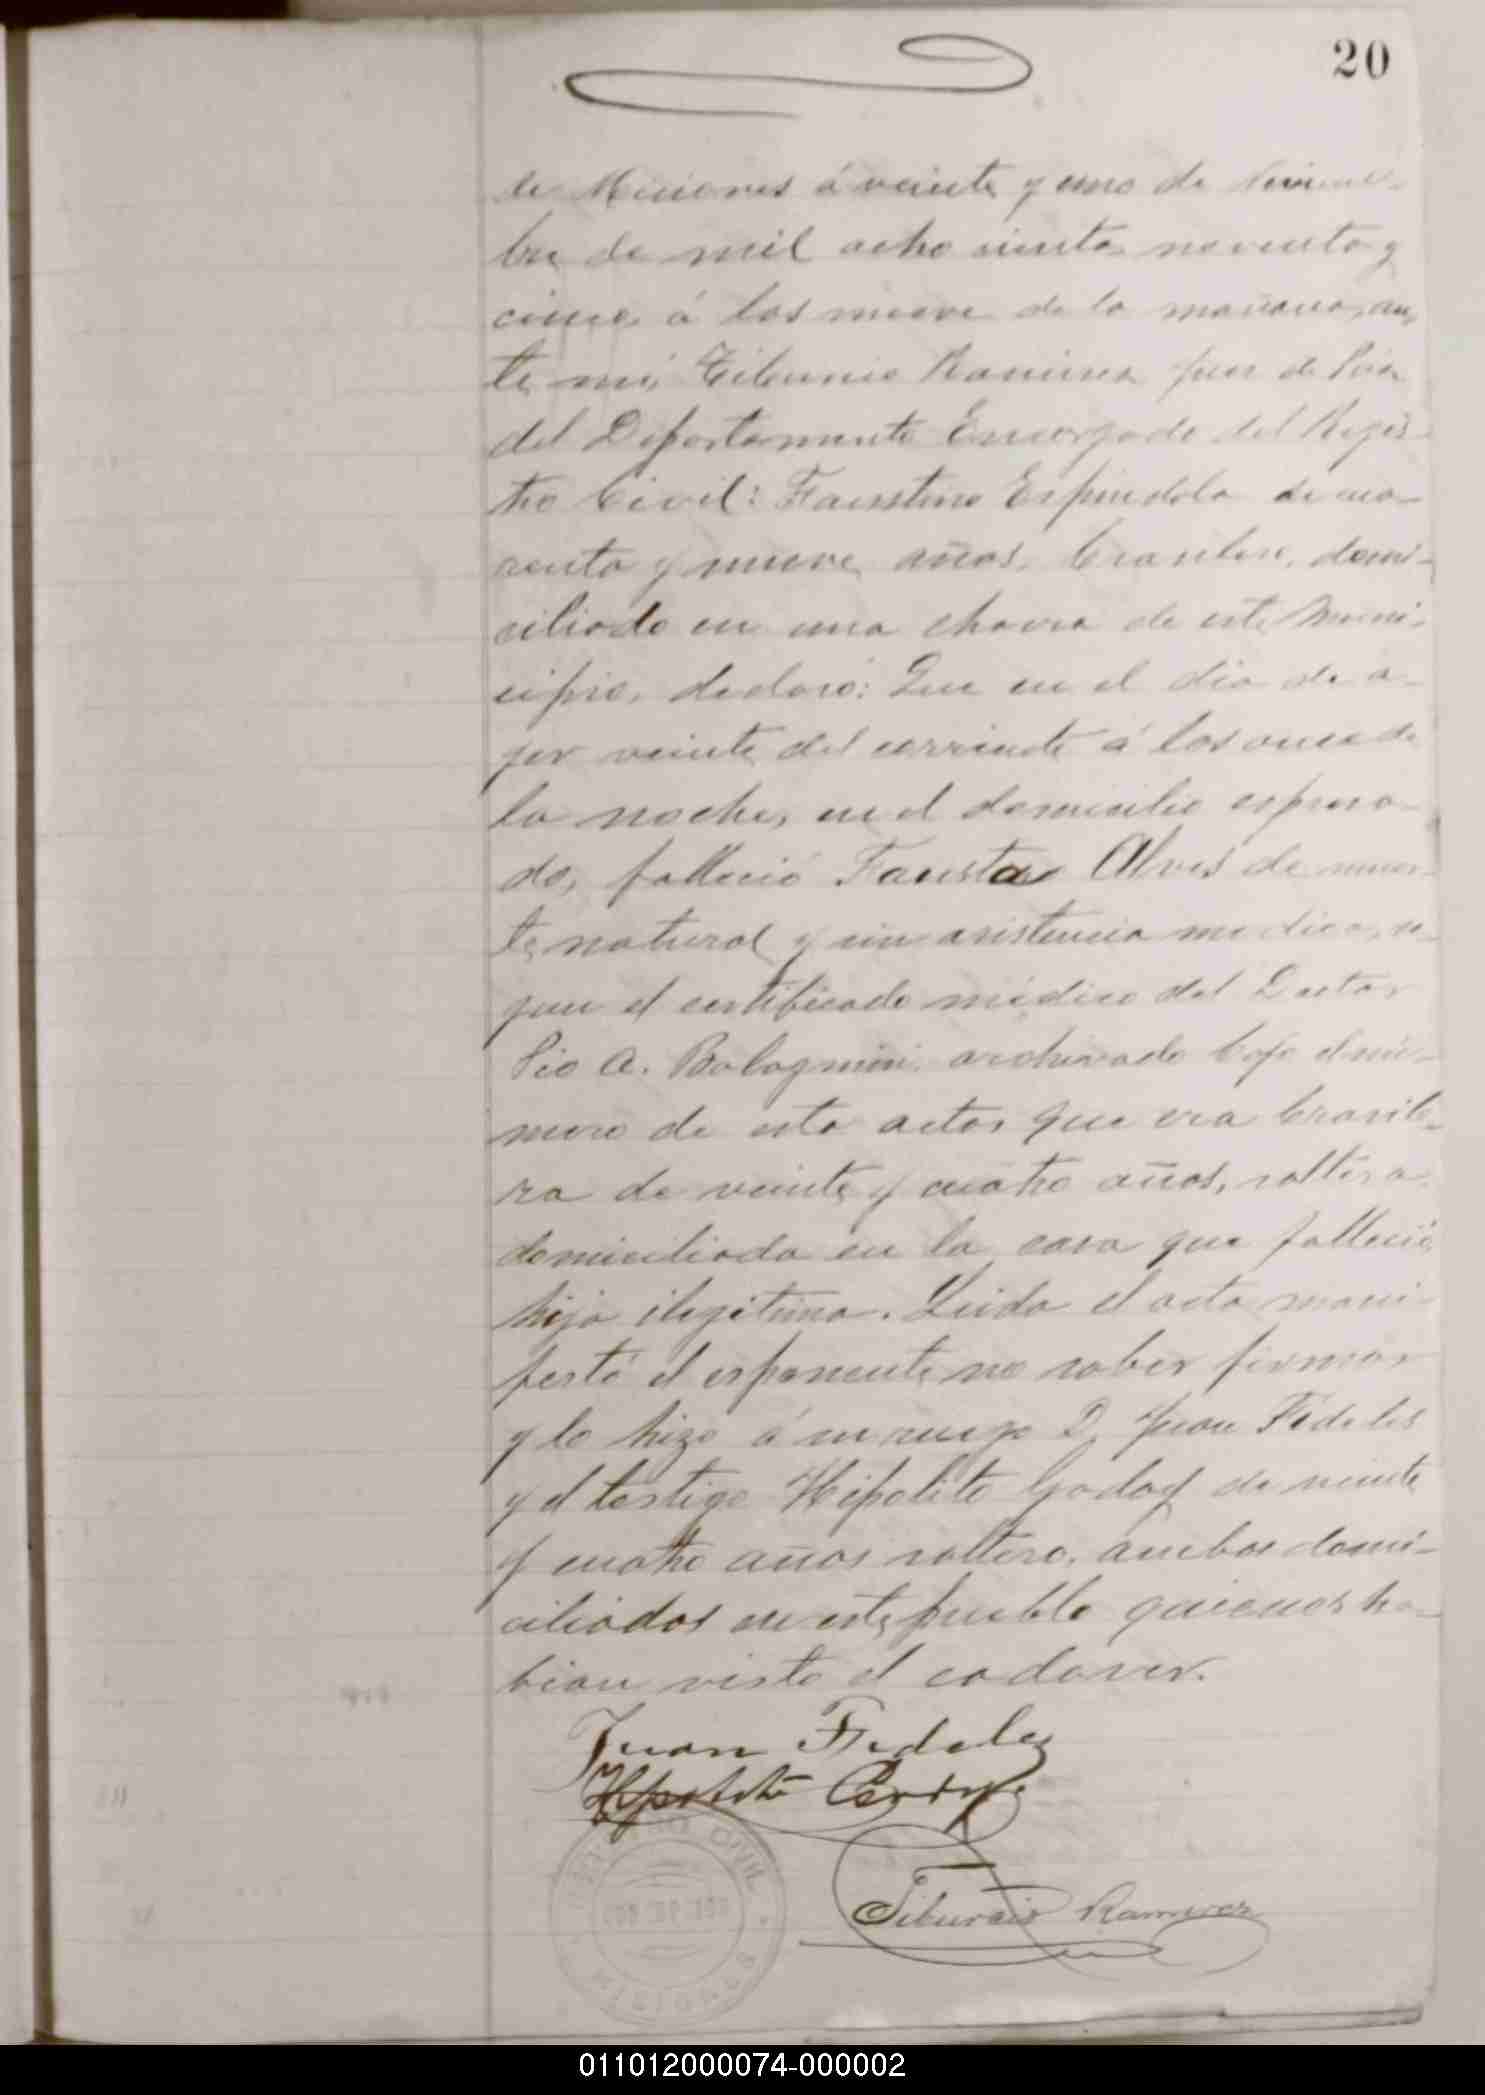 20
de Misiones á veinte y uno de Noviem-
bre de mil ocho cientos noventa y
cinco á las nueve de la mañana, an-
te mi, Tiburcio Ramirez Juez de Paz
del Departamento Encargado del Regis-
tro Civil: Faustino Espindola de cua-
renta y nueve años, domi-
ciliado en una chacra de este Muni-
cipio, declaró: Que en el dia de a-
yer veinte del corriente á las once de
la noche, en el domicilio espresa-
do, falleció Fausta Alves de muer-
te natural y sin asistencia medica, se-
gun el certificado médico del Doctor
Pio A. Bolognini archivado bajo el nú-
mero de esta acta, que era brasile-
ra de veinte y cuatro años, soltera
domiciliada en la casa que falleció
hija ilegitima. Leida el acta mani-
festó el esponente no saber firmar
y lo hizo á su ruego D. Juan Fideles
y el testigo Hipolito Godoy de veinte
y cuatro años soltero, ambos domi-
ciliados en este pueblo quienes ha-
bian visto el cadaver.
Juan Fideles
Hipolito
Tiburcio Ramirez
REGISTRO CIVIL
MISIONES
011012000074-000002